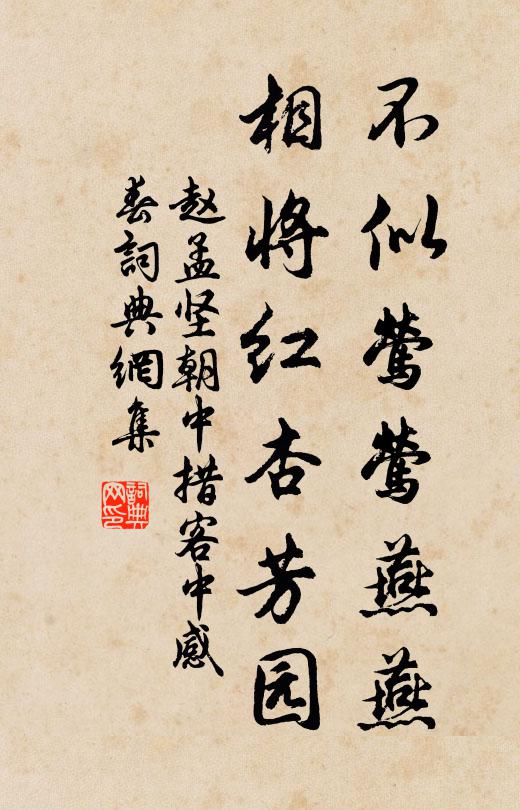 不似莺莺燕燕
相将红杏芳园
赵孟坚朝中措客中感
春詞典網集
詞典网印